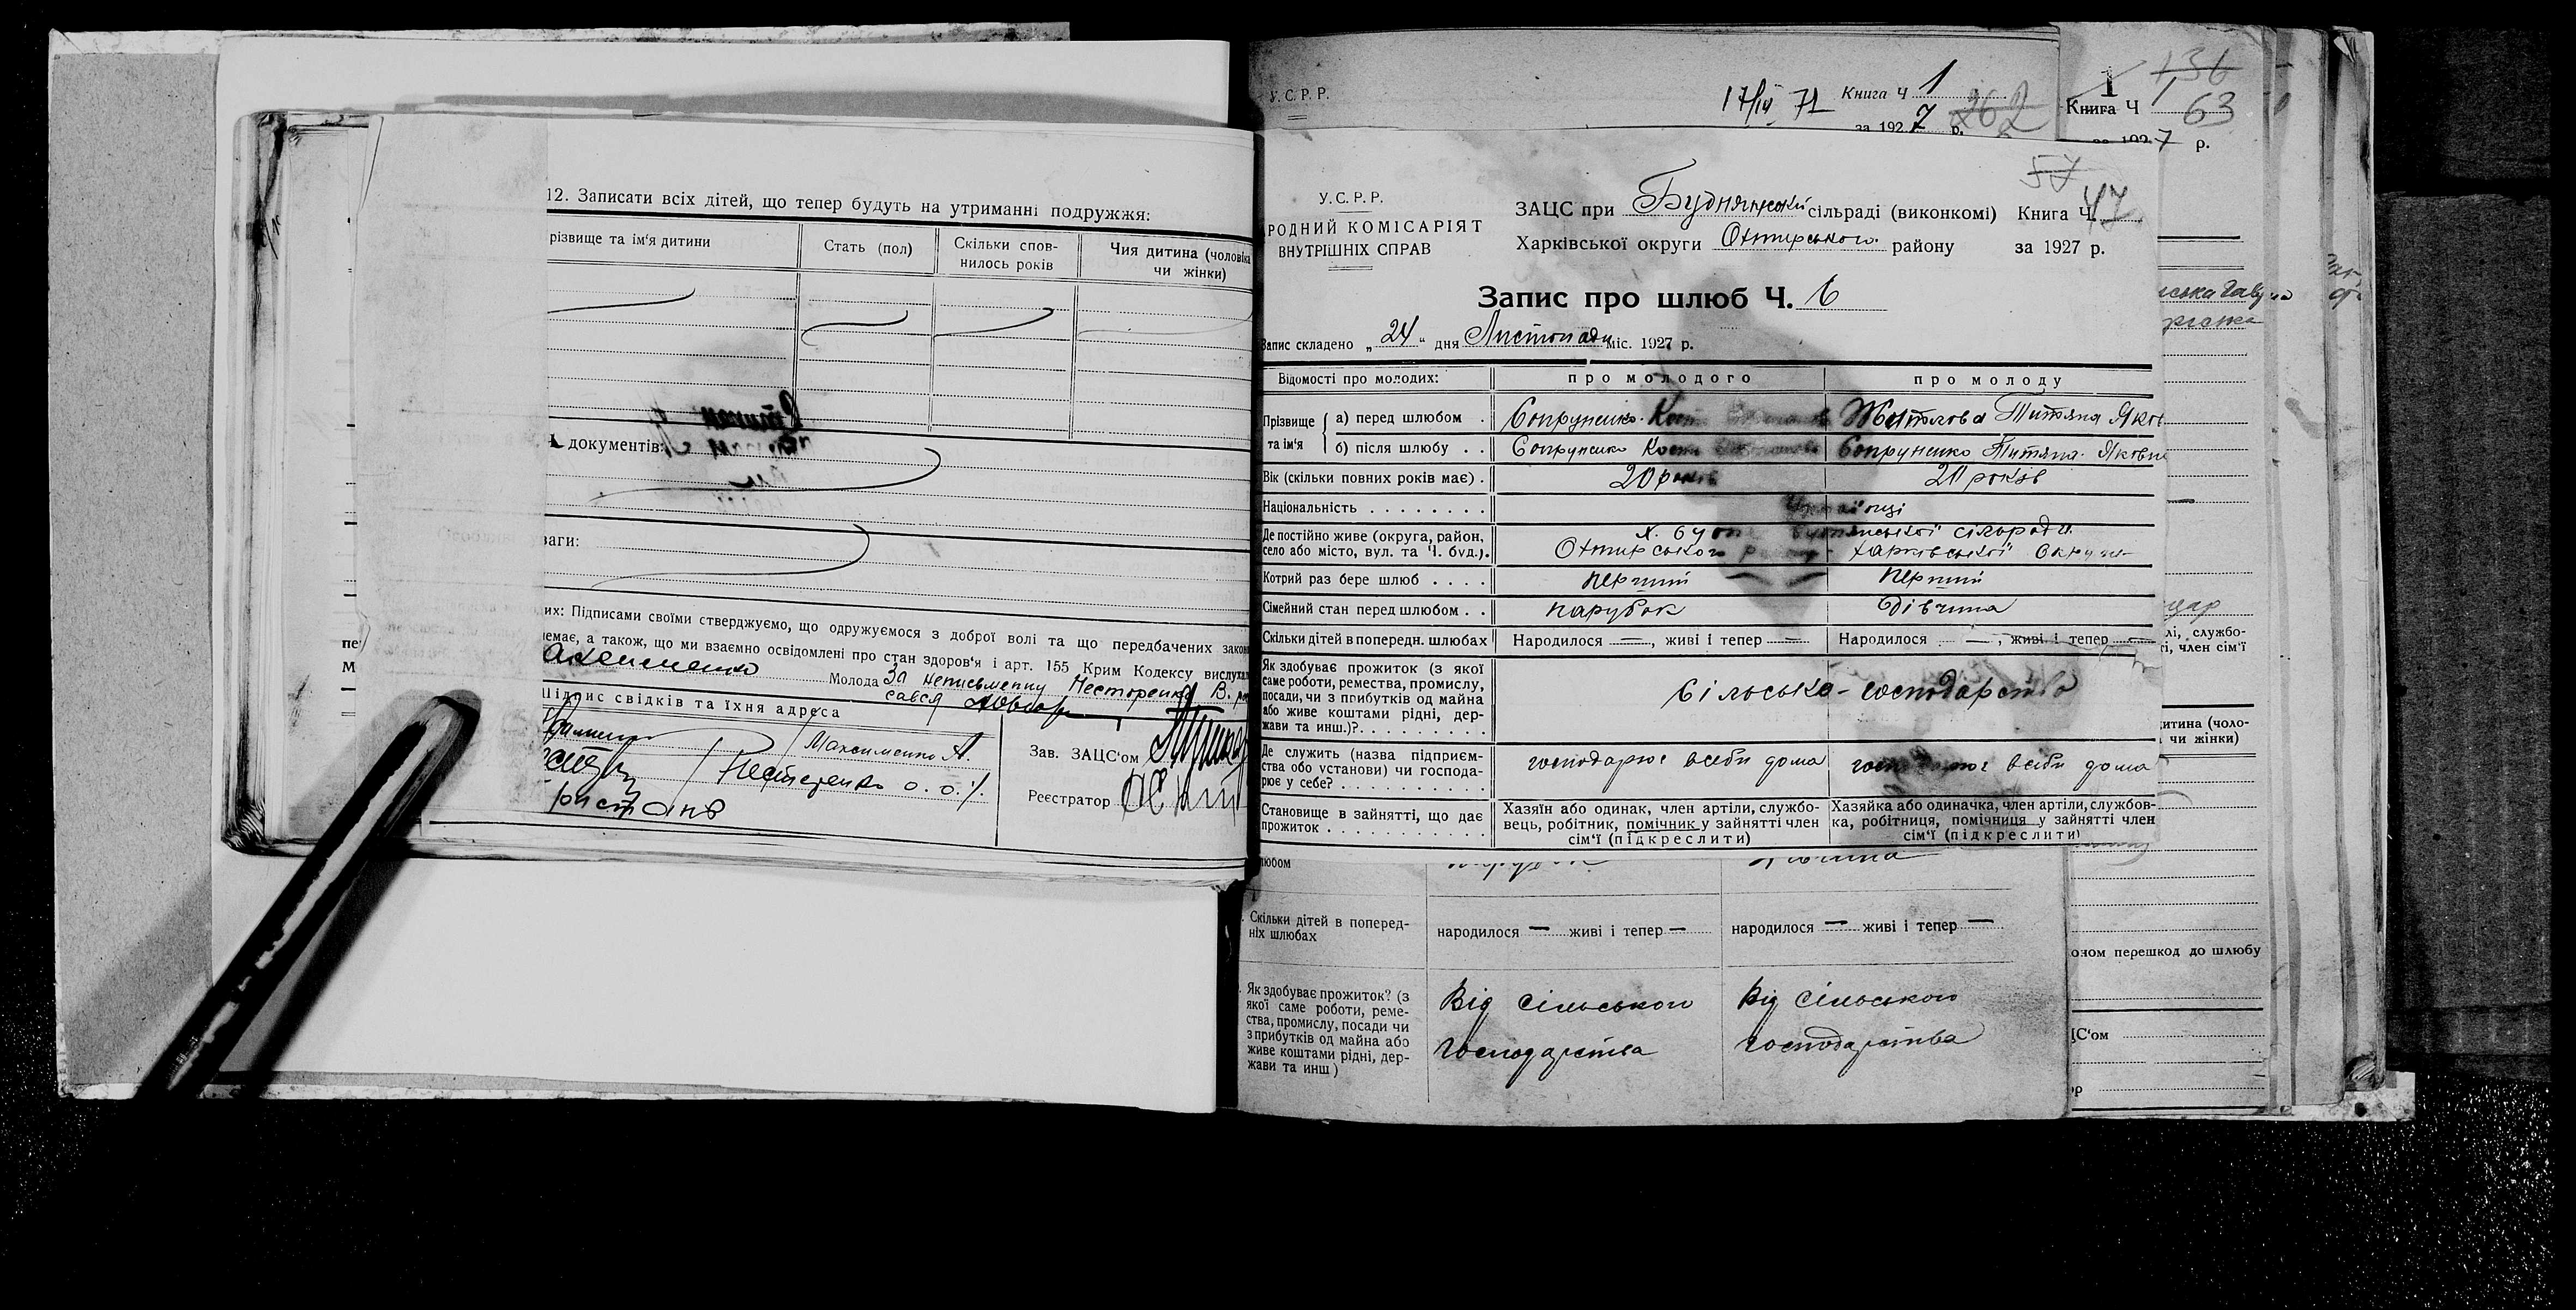 12. Записати всіх дітей, що тепер будуть на утриманні подружжя:
різвище та ім'я дитини
Стать (пол)
Скільки спов-
нилось років
Чия дитина (чоловіка
чи жінки)
документів:
ваги:
их: Підписами своїми стверджуємо, що одружуємося з доброї волі та що передбачених закон
немає, а також, що ми взаємно освідомлені про стан здоров'я і арт. 155 Крим Кодексу вислухал
Молода За неписьменну Несторенко В. ро
Підпис свідків та їхня адреса
Максименко А.
Нестеренко о. о.
Зав. ЗАЦС'ом
Реєстратор
пе
М
У.С.Р.Р.
17/IV 72 Книга Ч 1
за 1927 р. 262
1 136
Книга Ч 63
7 р.
57
47
У.С.Р.Р.
РОДНИЙ КОМІСАРІЯТ
ВНУТРІШНІХ СПРАВ
ЗАЦС при Буднянській сільраді (виконкомі) Книга Ч.
Харківської округи Охтирського району за 1927 р.
Запис про шлюб Ч. 6
Запис складено „24" дня Листопада міс. 1927 р.
Відомості про молодих:
про молодого
про молоду
Прізвище та ім'я
а) перед шлюбом . Сопруненко Кость Житлова Титяна Яков
б) після шлюбу . . Сопруненко Кость Сопруненко Титяна Яковн
Вік (скільки повних років має) . 20 років 20 років
Національність . . . . . . . . Українці
Де постійно живе (округа, район, село або місто, вул. та Ч. буд.). Х. Буд сільради
Охтирського району Харківської Округи
Котрий раз бере шлюб . . . . перший перший
Сімейний стан перед шлюбом . . парубок дівчина
Скільки дітей в попередн. шлюбах Народилося —, живі і тепер — Народилося —, живі і тепер —
Як здобуває прожиток (з якої
саме роботи, ремества, промислу,
посади, чи з прибутків од майна
або живе коштами рідні, дер-
жави та инш.)? . . . . . . . .
Сільське-господарство
Де служить (назва підприєм-
ства або установи) чи господа-
рює у себе? . . . . . . . . . .
господарює всеби дома
господарює всеби дома
Становище в зайнятті, що дає
прожиток . . . . . . . . . . .
Хазяїн або одинак, член артіли, службо-
вець, робітник, помічник у зайнятті член
сім'ї (підкреслити)
Хазяйка або одиначка, член артіли, службов-
ка, робітниця, помічниця у зайнятті член
сім'ї (підкреслити)
любом
Скільки дітей в поперед-
ніх шлюбах
народилося — живі і тепер —
народилося — живі і тепер —
Як здобуває прожиток? (з
якої саме роботи, реме-
ства, промислу, посади чи
з прибутків од майна або
живе коштами рідні, дер-
жави та инш)
Від сільського
господарства
Від сільського
господарства
лі, службо-
ті, член сім'ї
дитина (чоло-
чи жінки)
оном перешкод до шлюбу
ЦС'ом